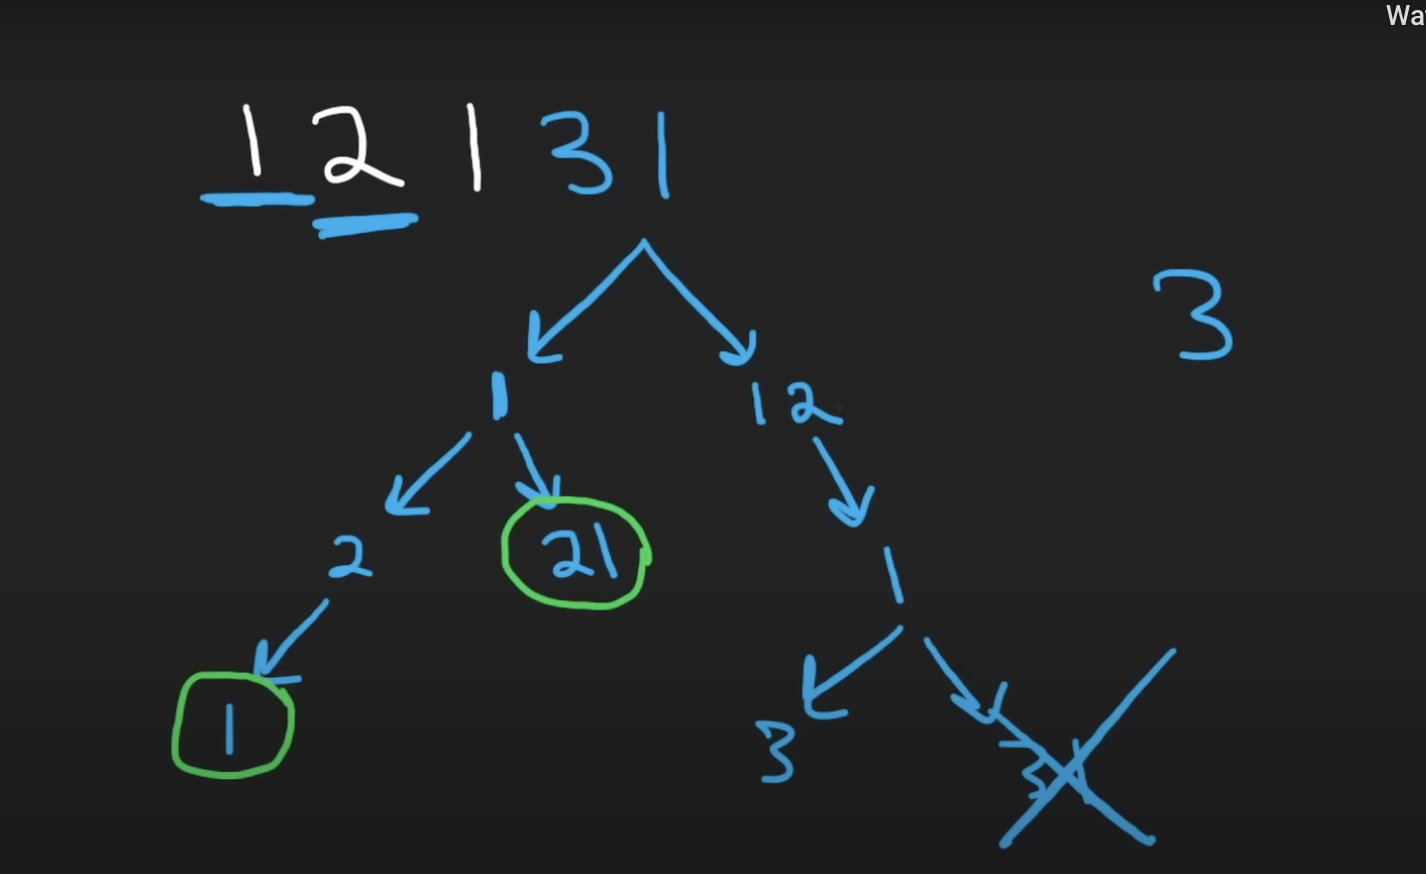 Wa
12131
3
1 12
2 21 1
1 3 31